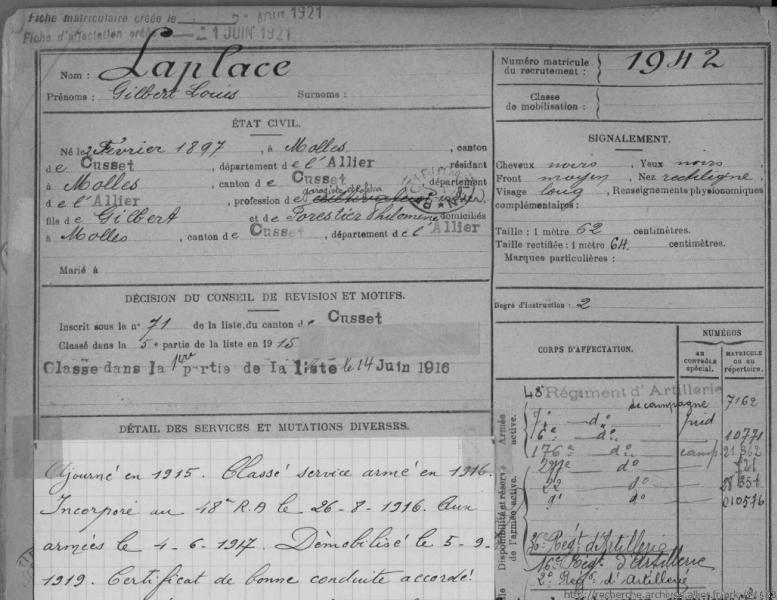 Fiche matriculaire créée le 2 AOUT 1921
Fiche d'affectation créée 21 JUIN 1921
Nom : Laplace
Prénoms : Gilbert Louis Surnoms :
ÉTAT CIVIL.
Né le 2 Février 1897, à Molles, canton
de Cusset, département de l'Allier, résidant
à Molles, canton de Cusset, département
de l'Allier, profession de
fils de Gilbert et de Forestier Philomène domiciliés
à Molles, canton de Cusset, département de l'Allier
Marié à
DÉCISION DU CONSEIL DE REVISION ET MOTIFS.
Inscrit sous le n° 71 de la liste du canton de Cusset
Classé dans la 5e partie de la liste en 1915
Classé dans la 1re partie de la liste le 14 Juin 1916
DÉTAIL DES SERVICES ET MUTATIONS DIVERSES.
Ajourné en 1915. Classé service armé en 1916.
Incorporé au 48e R.A le 26-8-1916. Aux
armées le 4-6-1917. Démobilisé le 5-9-
1919. Certificat de bonne conduite accordé.
Numéro matricule du recrutement : 1942
Classe de mobilisation :
SIGNALEMENT.
Cheveux noirs, Yeux noirs
Front moyen, Nez rectiligne
Visage long, Renseignements physionomiques
complémentaires :
Taille : 1 mètre 62 centimètres.
Taille rectifiée : 1 mètre 64 centimètres.
Marques particulières :
Degré d'instruction : 2
CORPS D'AFFECTATION.
NUMÉROS
AU CONTRÔLE spécial.
MATRICULE ou au répertoire.
Armée active.
Disponibilité et réserve de l'armée active.
48e Régiment d'Artillerie
de campagne 7162
do
16e do 10771
176e do camp 21362
do
22 do
do 010576
36e Régt d'Artillerie
16e Régt d'Artillerie
2e Régt d'Artillerie